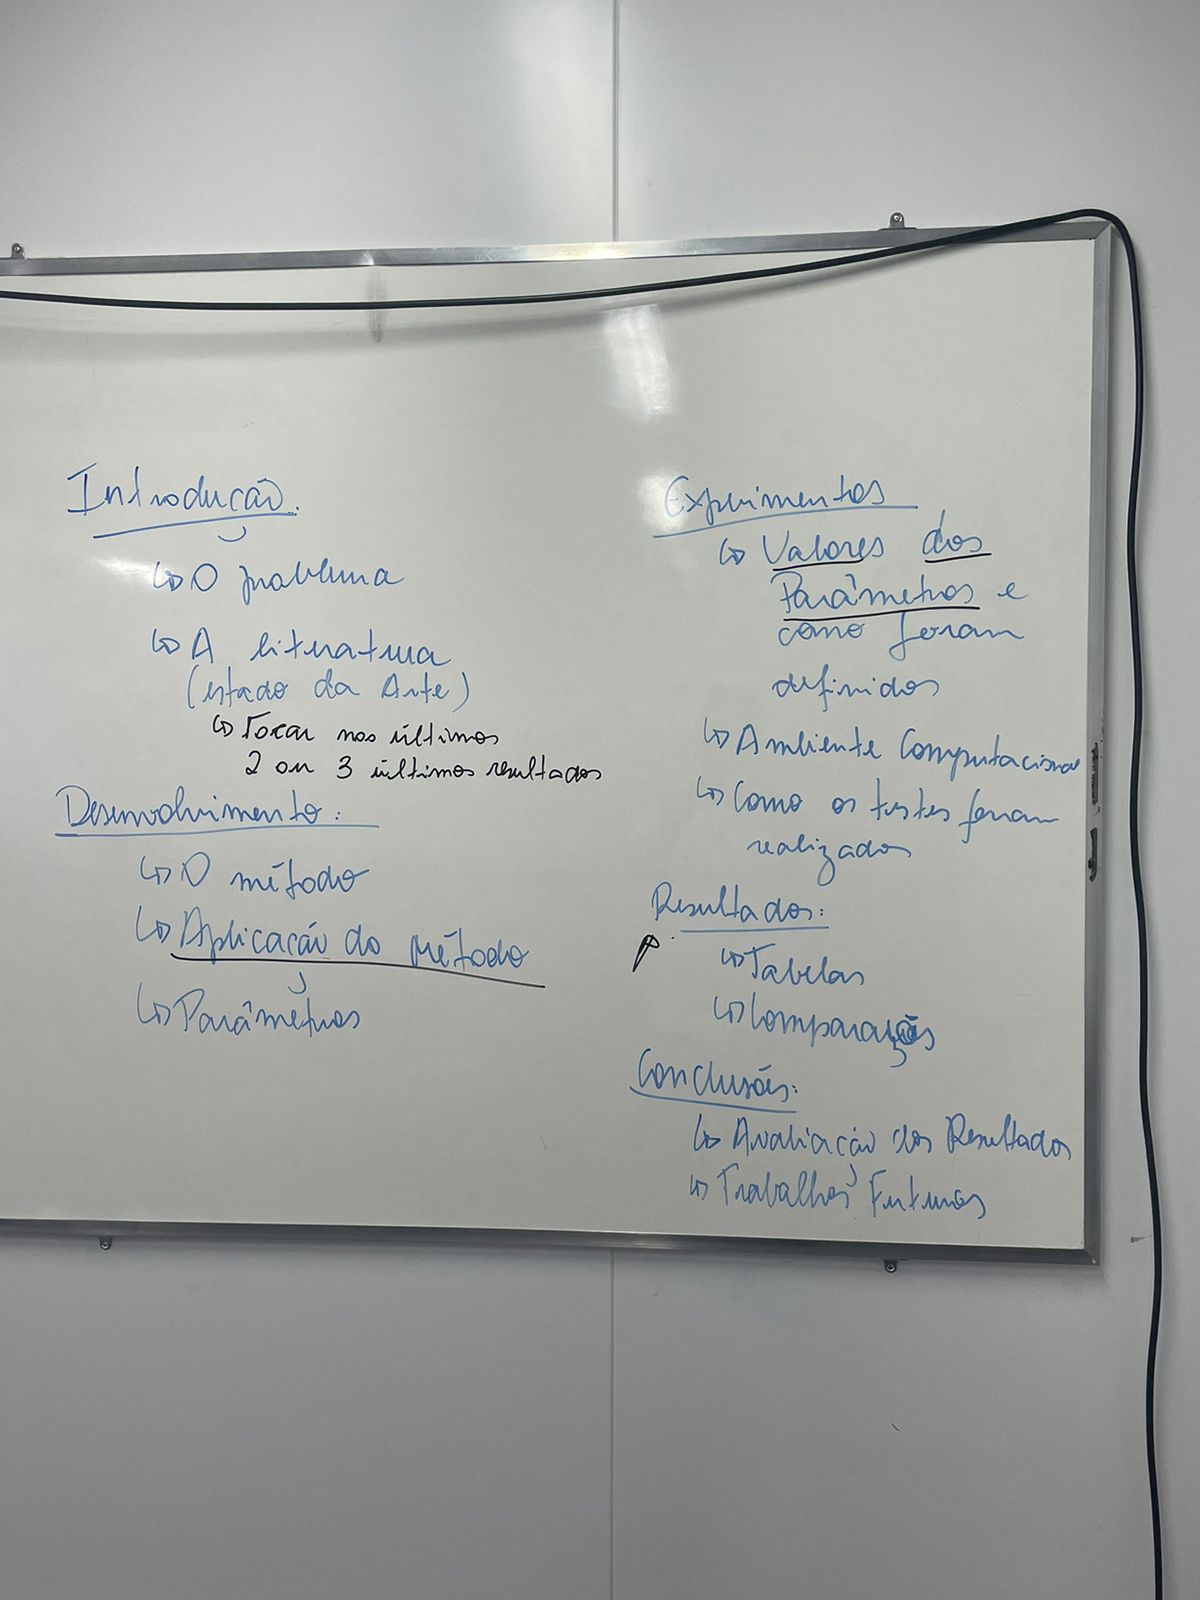 Introdução.
↳ O problema
↳ A literatura
(estado da Arte)
↳ Focar nos últimos
2 ou 3 últimos resultados
Desenvolvimento:
↳ O método
↳ Aplicação do Método
↳ Parâmetros
Experimentos
↳ Valores dos
Parâmetros e
como foram
definidos
↳ Ambiente Computacional
↳ Como os testes foram
realizados
Resultados:
↳ Tabelas
↳ Comparações
Conclusões:
↳ Avaliação dos Resultados
↳ Trabalhos Futuros